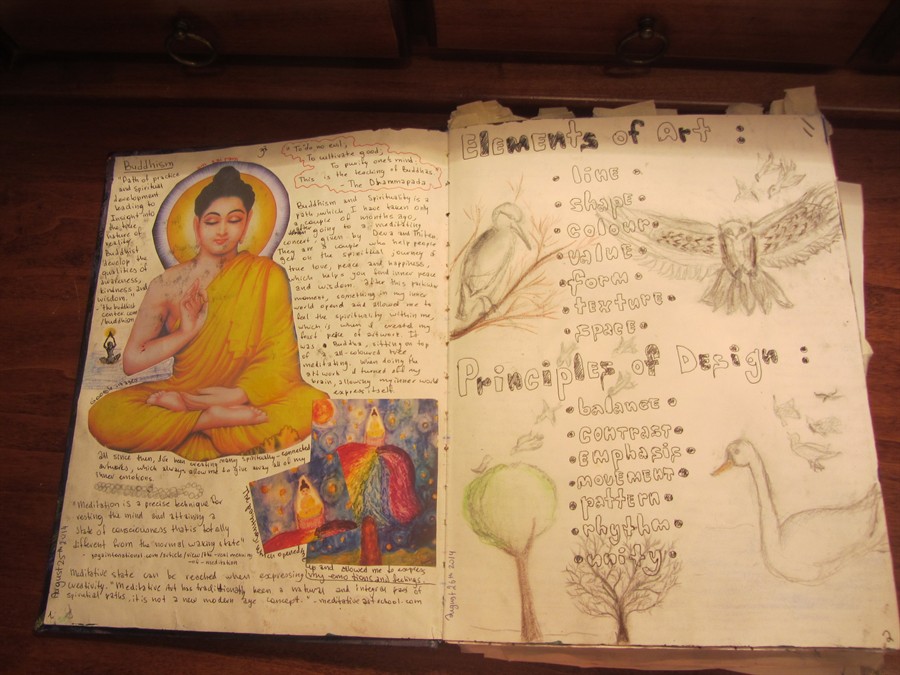 Buddhism
"Path of practice
and spiritual
development
leading to
Insight into
the true
nature of
reality.
Buddhist
develop the
qualities of
awareness,
kindness and
wisdom."
"To do no evil;
To cultivate good;
To purify one's mind:
This is the teaching of Buddhas"
- The Dhammapada
Buddhism and Spirituality is a
path which I have taken only
a couple of months ago,
going to a meditating
concert, given by Deva and Miten.
They are a couple who help people
get on the spiritual journey of
true love, peace and happiness,
which helps you find inner peace
and wisdom. After this particular
moment, something in my inner
world opened and allowed me to
feel the spirituality within me,
which is when I created my
first piece of artwork. It
was a Buddha, sitting on top
of a coloured tree
meditating. When doing the
artwork I turned off my
brain, allowing my inner world
express itself.
All since then, I've been creating many spiritually-connected
artworks, which always allowed me to give away all of my
inner emotions.
"Meditation is a precise technique for
resting the mind and attaining a
state of consciousness that is totally
different from the normal waking state"
- yogainternational.com/article/view/the-real-meaning
-of-meditation
up and allowed me to express
my emotions and feelings.
Meditative state can be reached when expressing
creativity. "Meditative Art has traditionally been a natural and integral part of
spiritual paths, it is not a new modern age concept." - meditativeartschool.com
August 25th 2014
1
Elements of Art :
• line •
• shape •
• colour •
• value •
• form •
• texture •
• space •
Principles of Design :
• balance •
• contrast •
• emphasis •
• movement •
• pattern •
• rhythm •
• unity •
August 26th 2014
2